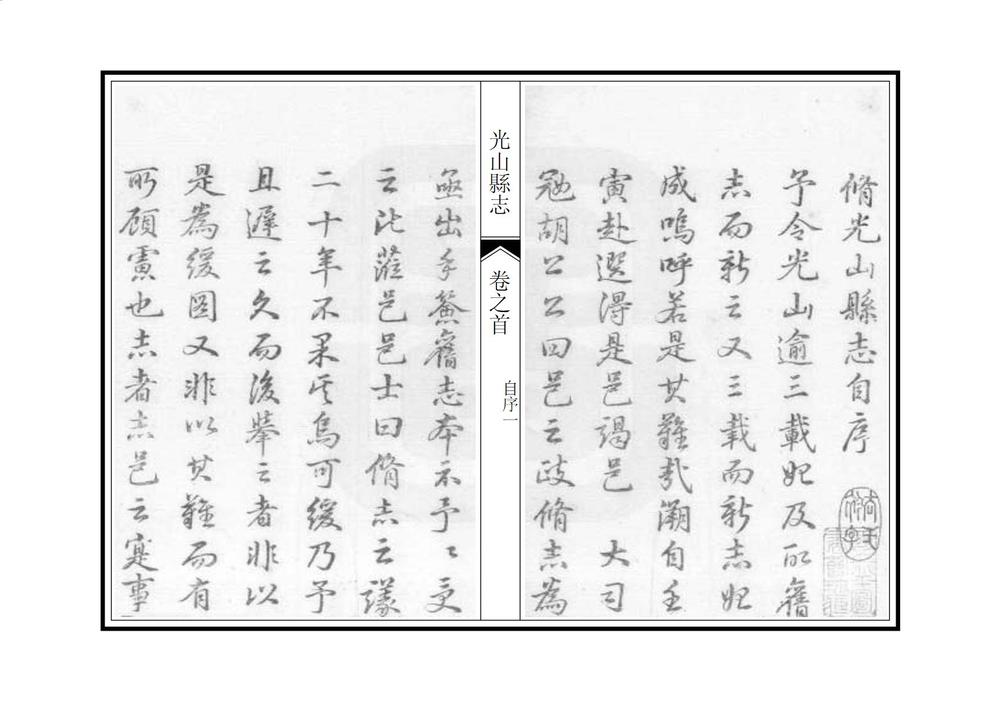 脩光山縣志自序
予令光山逾三載始及取舊
志而新之又三載而新志始
成嗚呼若是其難哉溯自壬
寅赴選得是邑謁邑 大司
冦胡公公曰邑之脩志為
光山縣志 卷之首 自序一
亟出手舊志本示予〻受
之比蒞邑邑士曰脩志之議
二十年不果矣烏可緩乃予
且遲之久而後舉之者非以
是為緩圖又非以其難而有
所顧慮也志者志邑之寔事